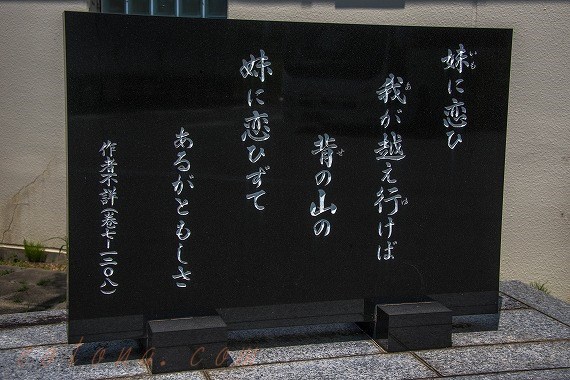 妹に恋ひ
我が越え行けば
背の山の
妹に恋ひずて
あるがともしさ
作者不詳（巻七ー一二〇八）